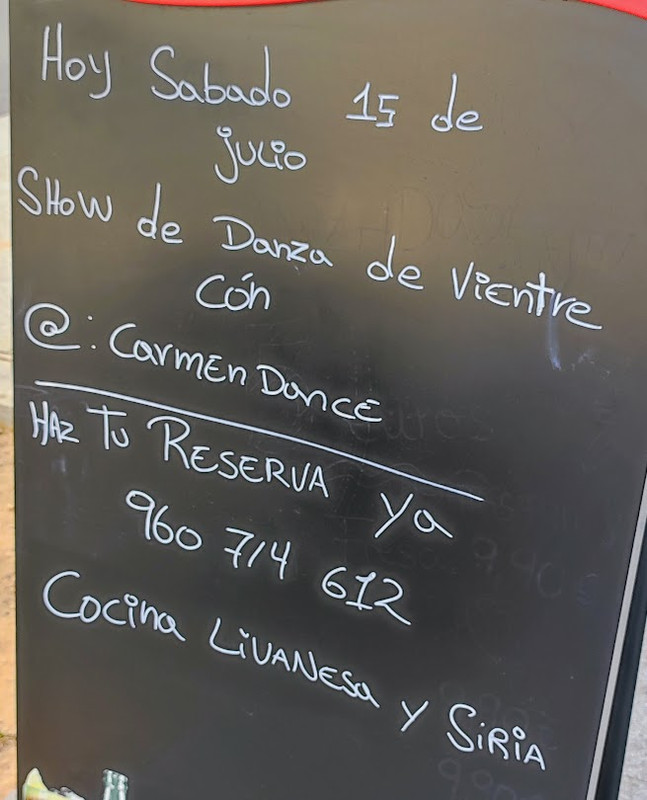 Hoy Sabado 15 de
julio
SHOW de Danza de Vientre
Cón
@: CarmEn DancE
HAZ TU RESERVA ya
960 714 612
Cocina LiVANEsa y SiRiA